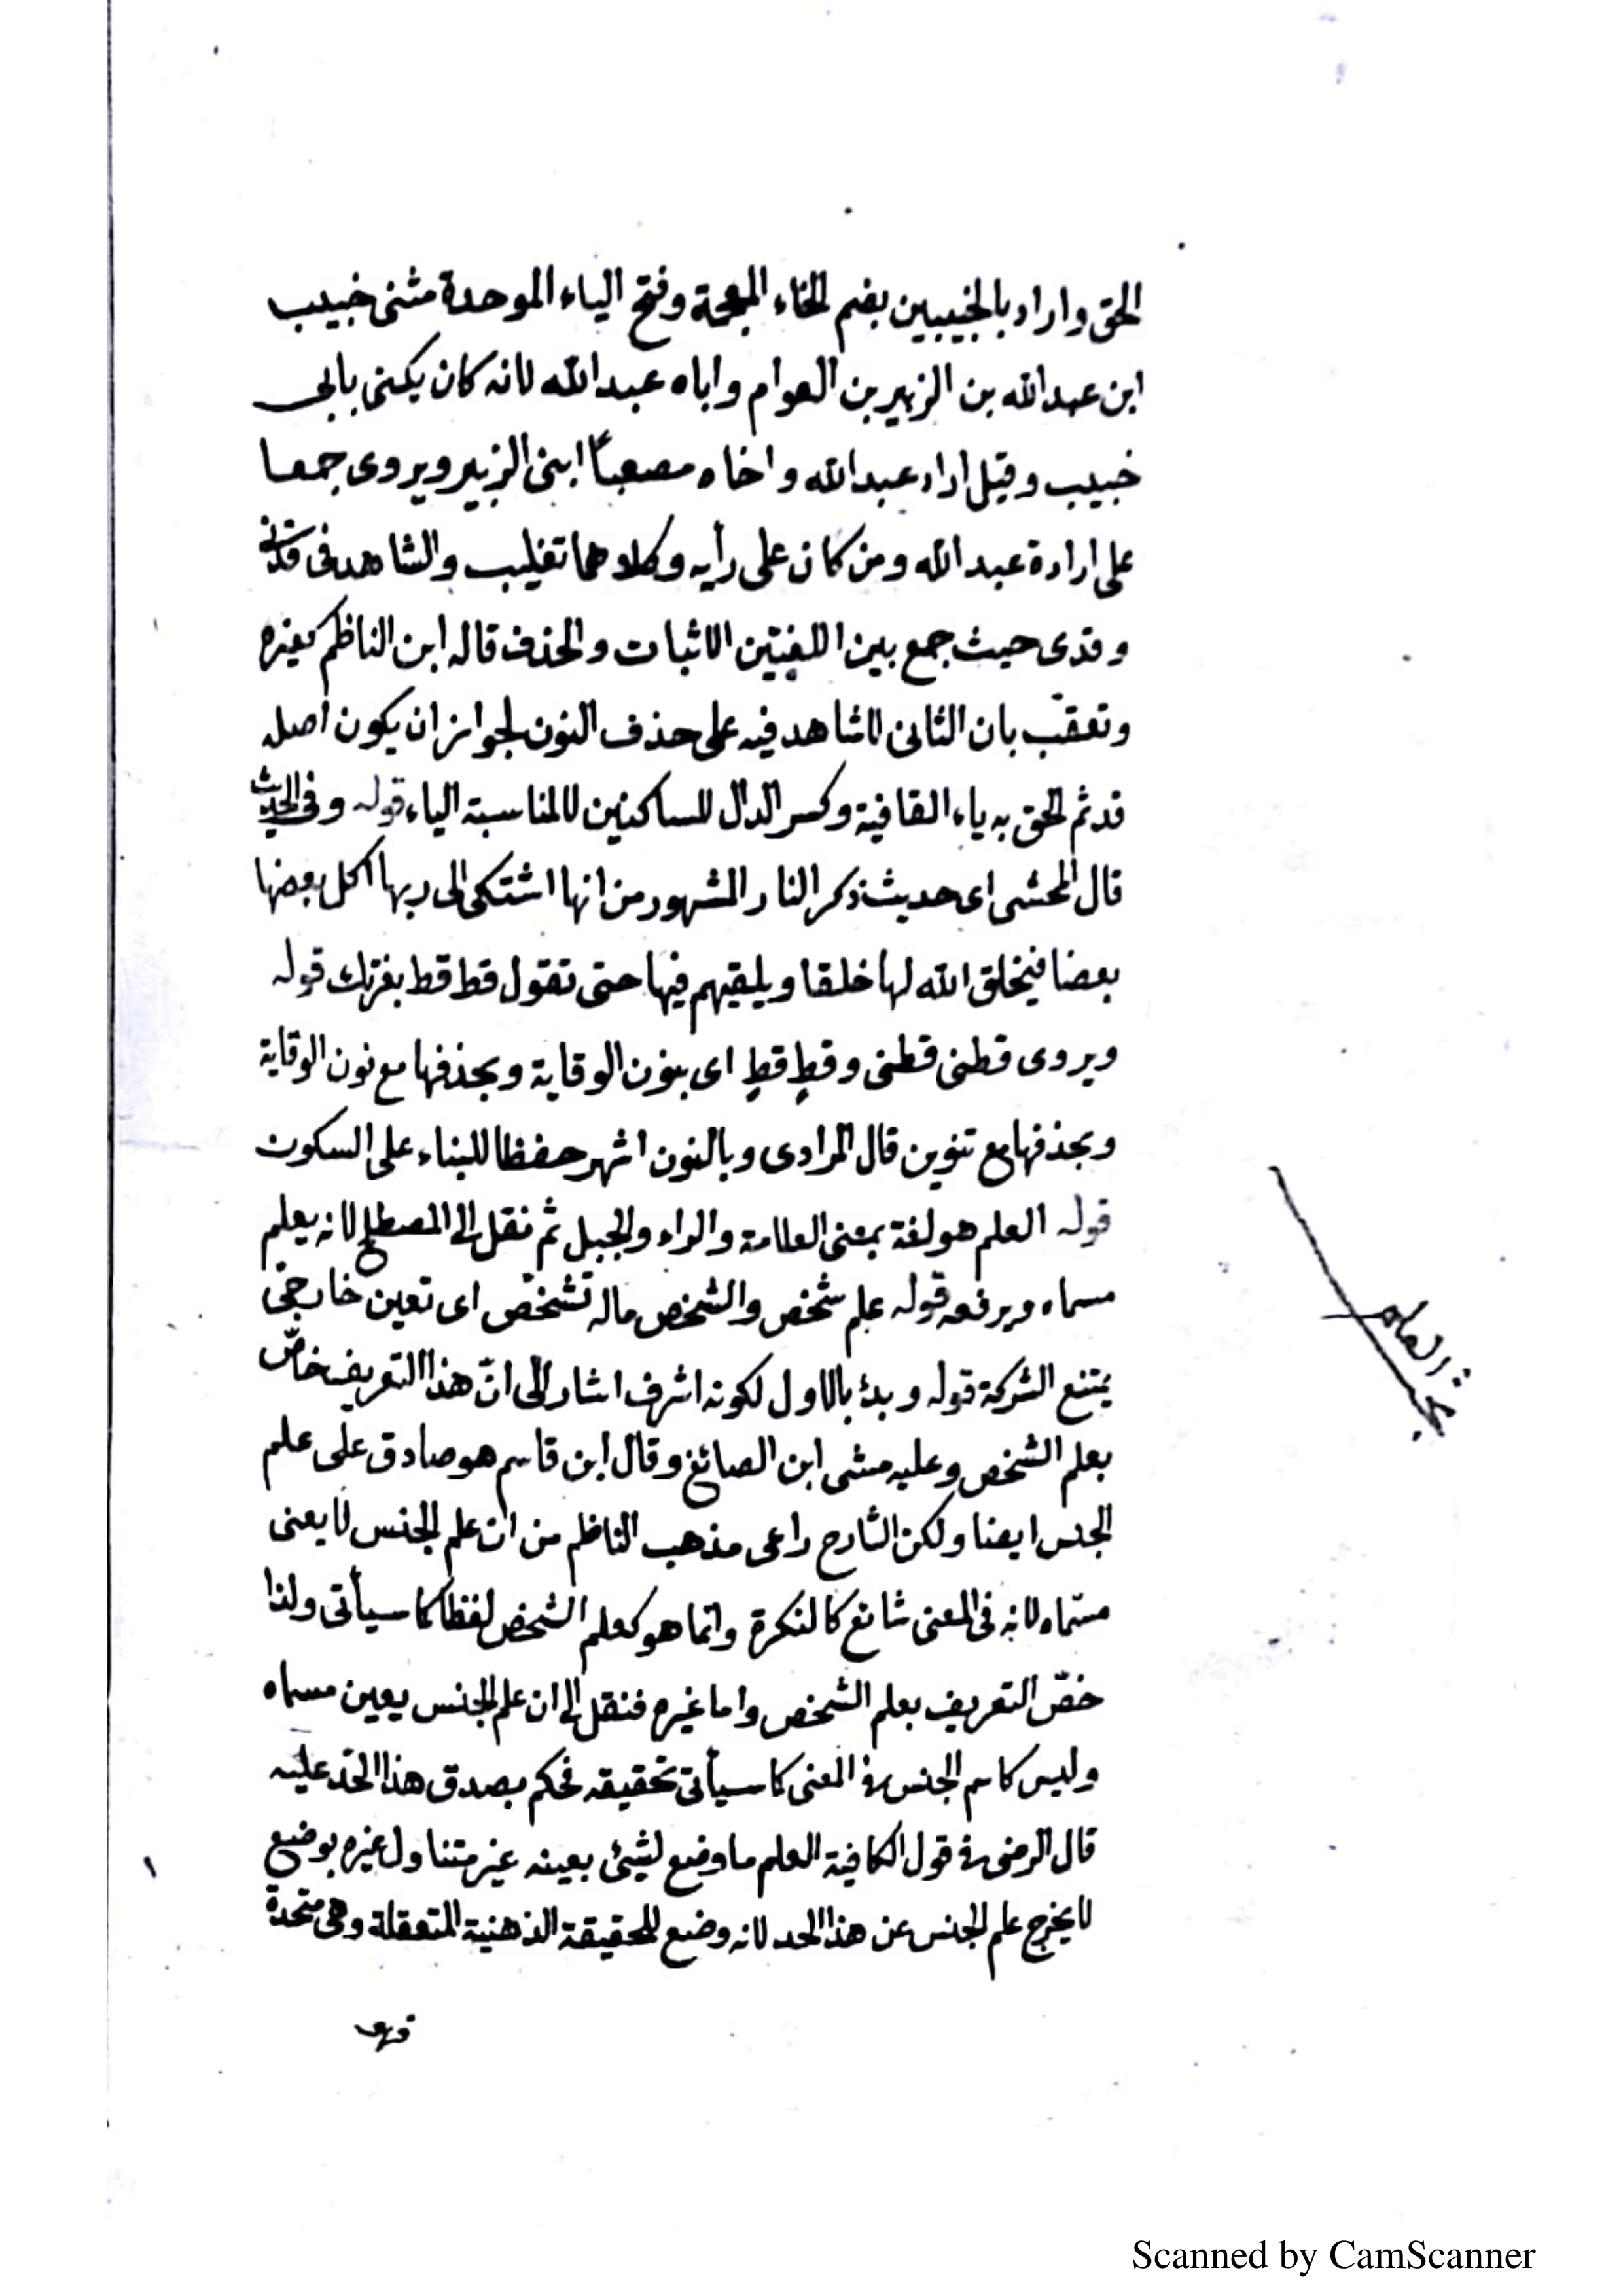 الحق واراد بالخبيبين بضم الخاء المعجمة وفتح الياء الموحدة مثنى خبيب
ابن عبد الله بن الزبير بن العوام واباه عبد الله لانه كان يكنى بابى
خبيب وقيل اراد عبد الله واخاه مصعباً ابنى الزبير ويروى جمعا
على ارادة عبد الله ومن كان على رأيه وكلاهما تغليب والشاهد فى قدنى
وقدى حيث جمع بين اللغتين الاثبات والحذف قاله ابن الناظم كغيره
وتعقّب بان الثانى لاشاهد فيه على حذف النون لجواز ان يكون اصله
قد ثم الحق به ياء القافية وكسر الدال للساكنين لالمناسبة الياء قوله وفى الحديث
قال المحشى اى حديث ذكر النار المشهور من انها اشتكى الى ربها اكل بعضها
بعضا فيخلق الله لها خلقا ويلقيهم فيها حتى تقول قط قط بعزتك قوله
ويروى قطنى قطنى وقطٍ قطٍ اى بنون الوقاية وبحذفها مع نون الوقاية
وبحذفها مع تنوين قال المرادى وبالنون اشهر حفظا للبناء على السكون
قوله العلم هو لغة بمعنى العلامة والراء والجبل ثم نقل الى المصطلح لانه يعلم
مسماه ويرفعه قوله علم شخص والشخص ماله تشخّص اى تعين خارجىّ
يمتنع الشركة قوله وبدئ بالاول لكونه اشرف اشار الى انّ هذا التعريف خاصّ
بعلم الشخص وعليه مشى ابن الصائغ وقال ابن قاسم هو صادق على علم
الجنس ايضا ولكن الشارح راعى مذهب الناظم من انّ علم الجنس لا يعنى
مسمّاه لانه فى المعنى شائع كالنكرة وانما هو كعلم الشخص لفظا كما سيأتى ولذا
خصّ التعريف بعلم الشخص واما غيره فنقل الى ان علم الجنس يعين مسماه
وليس كاسم الجنس فى المعنى كما سيأتى تحقيقه فحكم بصدق هذا الحدّ عليه
قال الرضى فى قول الكافية العلم ما وضع لشيئ بعينه غير متناول غيره بوضع
لا يخرج علم الجنس عن هذا الحد لانه وضع للحقيقة الذهنية المتعقلة وهى متحدة
فهو
العلم
Scanned by CamScanner